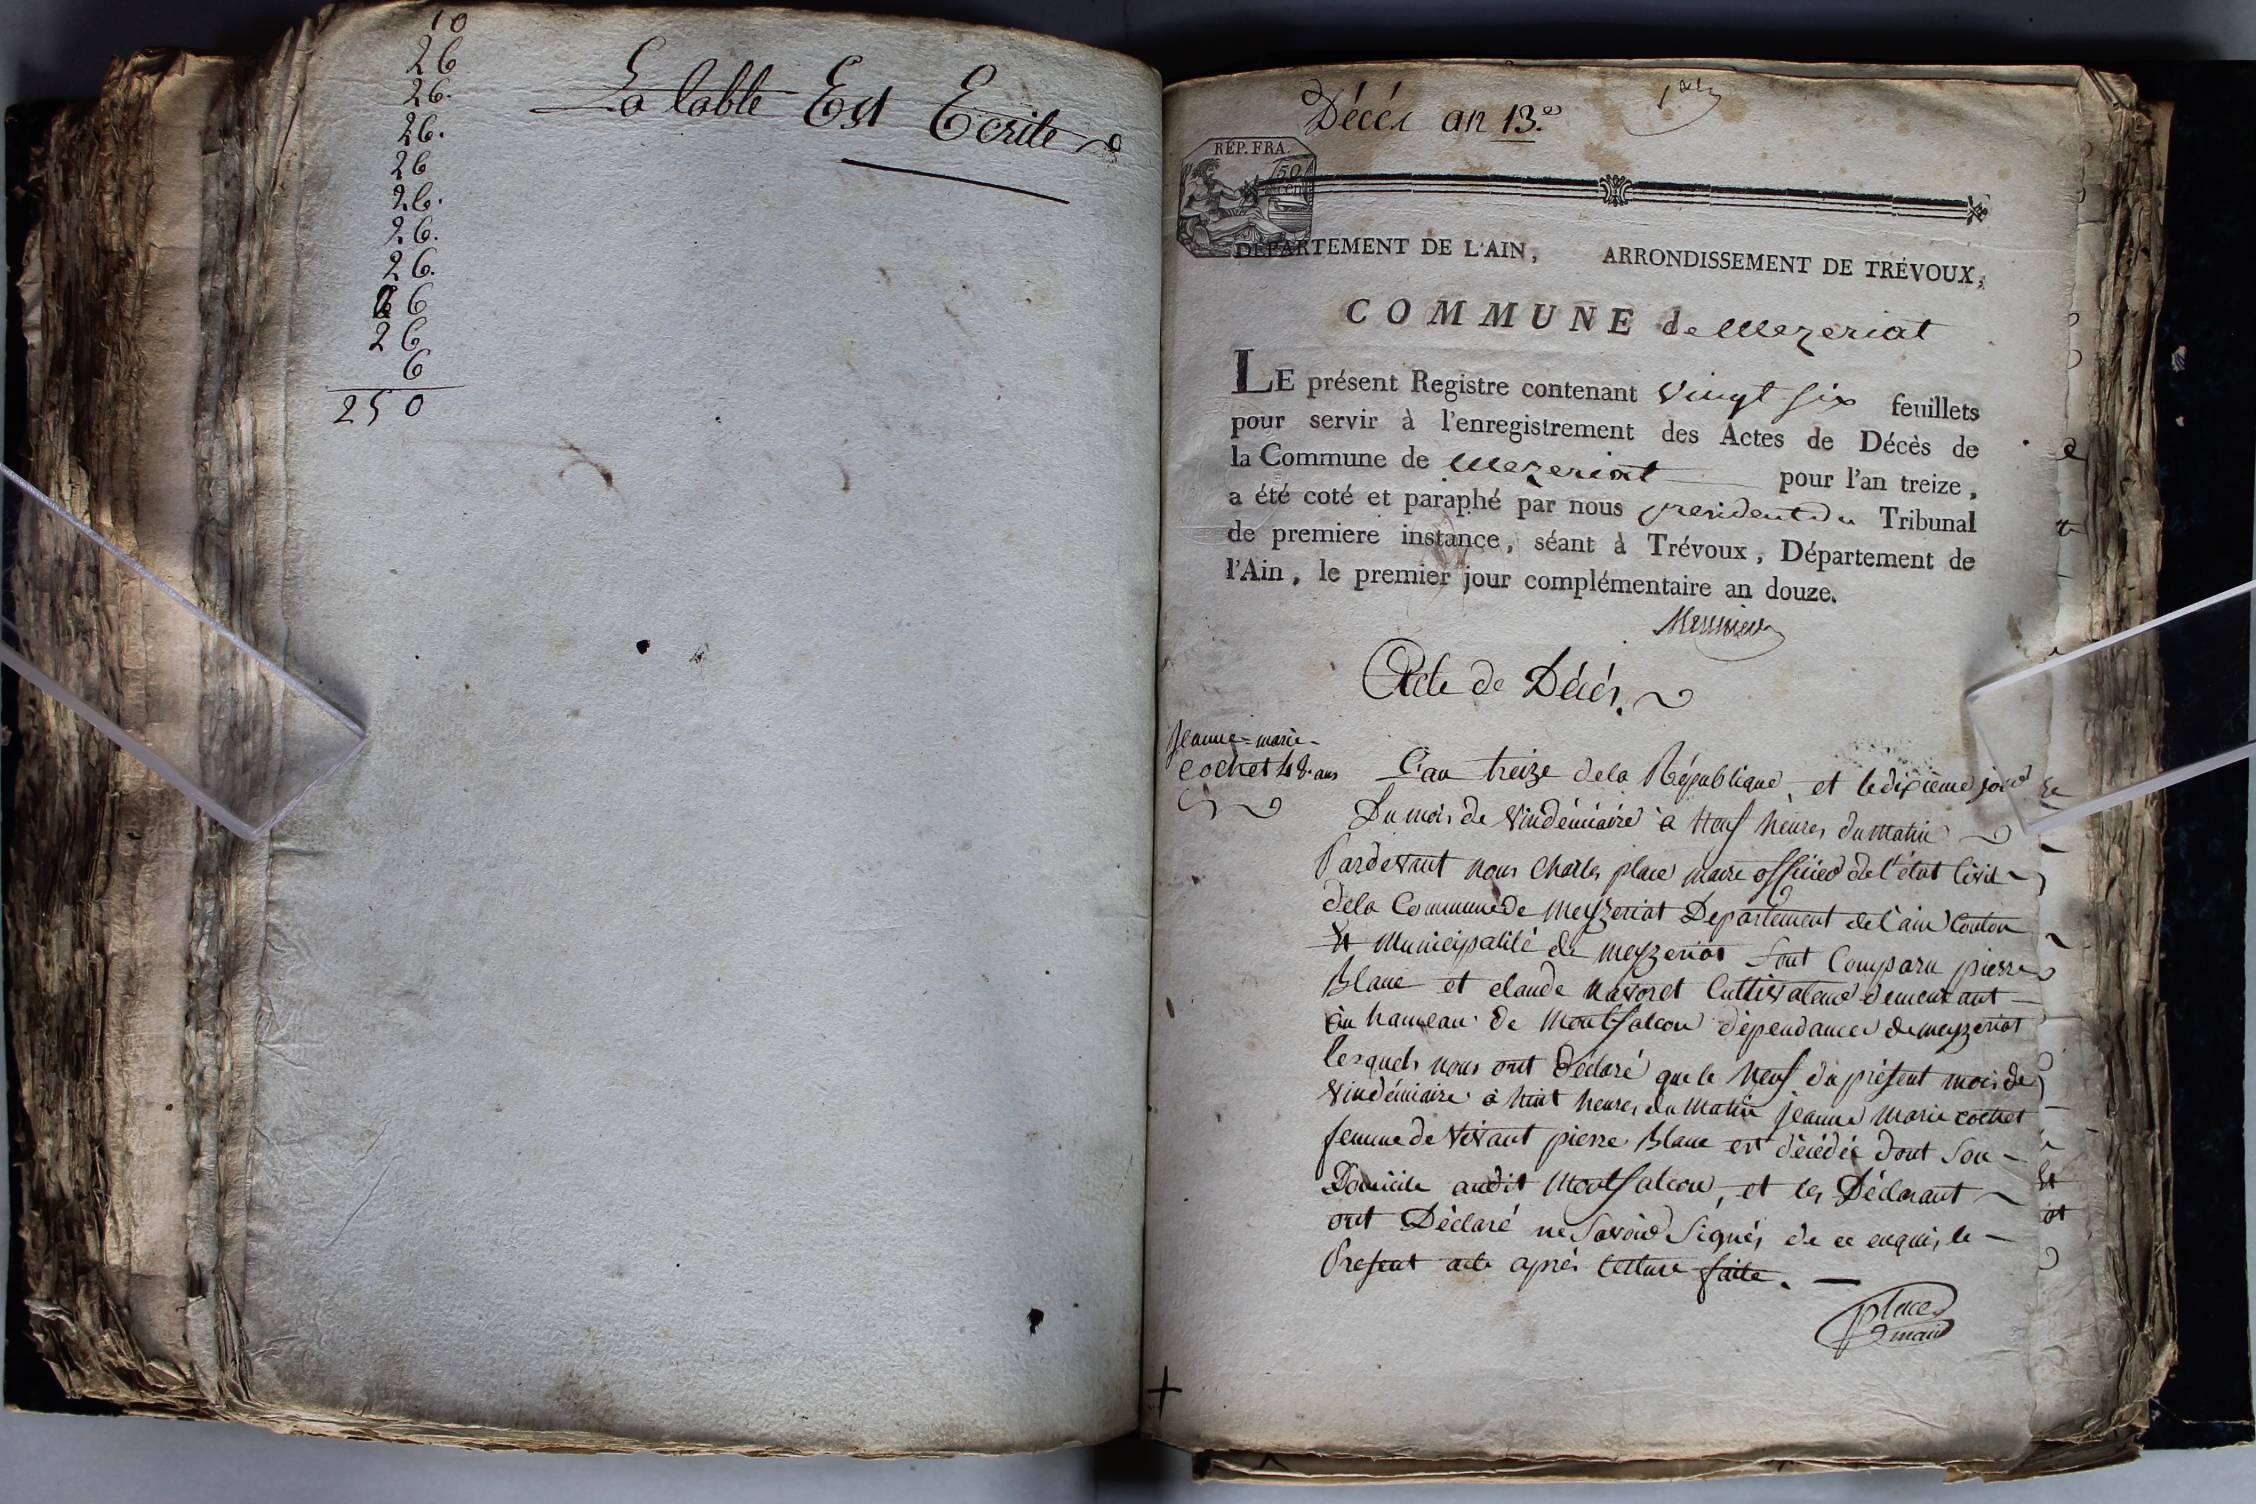 10
26
26.
26.
26
26.
26.
26.
26
26
6
250
La table Est Ecrite
Décés an 13.e
RÉP. FRA.
50
CEN
DÉPARTEMENT DE L'AIN, ARRONDISSEMENT DE TRÉVOUX,
COMMUNE de Mezeriat
LE présent Registre contenant vingt six feuillets
pour servir à l'enregistrement des Actes de Décès de
la Commune de Mezeriat pour l'an treize,
a été coté et paraphé par nous president du Tribunal
de premiere instance, séant à Trévoux, Département de
l'Ain, le premier jour complémentaire an douze.
Meunier
Acte de Décés.
Jeanne-marie-
cochet 48. ans
L'an treize dela République, et le dixième jour
Du mois de Vindémiaire à Neuf heures du matin
Pardevant nous Charles place maire officier de l'état Civil
dela Commune de Meyzeriat Departement de l'ain Conton
Et Municipalité de meyzeriat Sont Comparu pierre
Blanc et claude Navoret Cultivateur demeurant
au hameau de Montfalcon dépendances de meyzeriat
lesquels nous ont Déclaré que le Neuf du présent mois de
Vindémiaire à huit heures du Matin jeanne Marie cochet
femme de Vivant pierre Blanc est décédée dont Son
Domicile audit Montfalcon, et les Déclarant
ont Déclaré ne Savoir Signés de ce enquis, le
Present acte aprés lecture faite.
place
maire